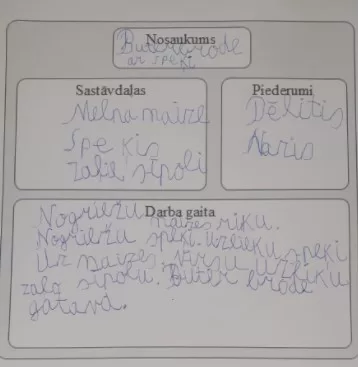 Nosaukums
Buterbrode
ar speķi
Sastāvdaļas
Melna maize
Speķis
zaļie sīpoli
Piederumi
Dēlītis
Nazis
Darba gaita
Nogriežu maizes riku.
Nogriežu speķi. Uzlieku speķi
Uz maizes. Virsu uzlieku
zaļo sīpolu. Buterbrode
gatava.